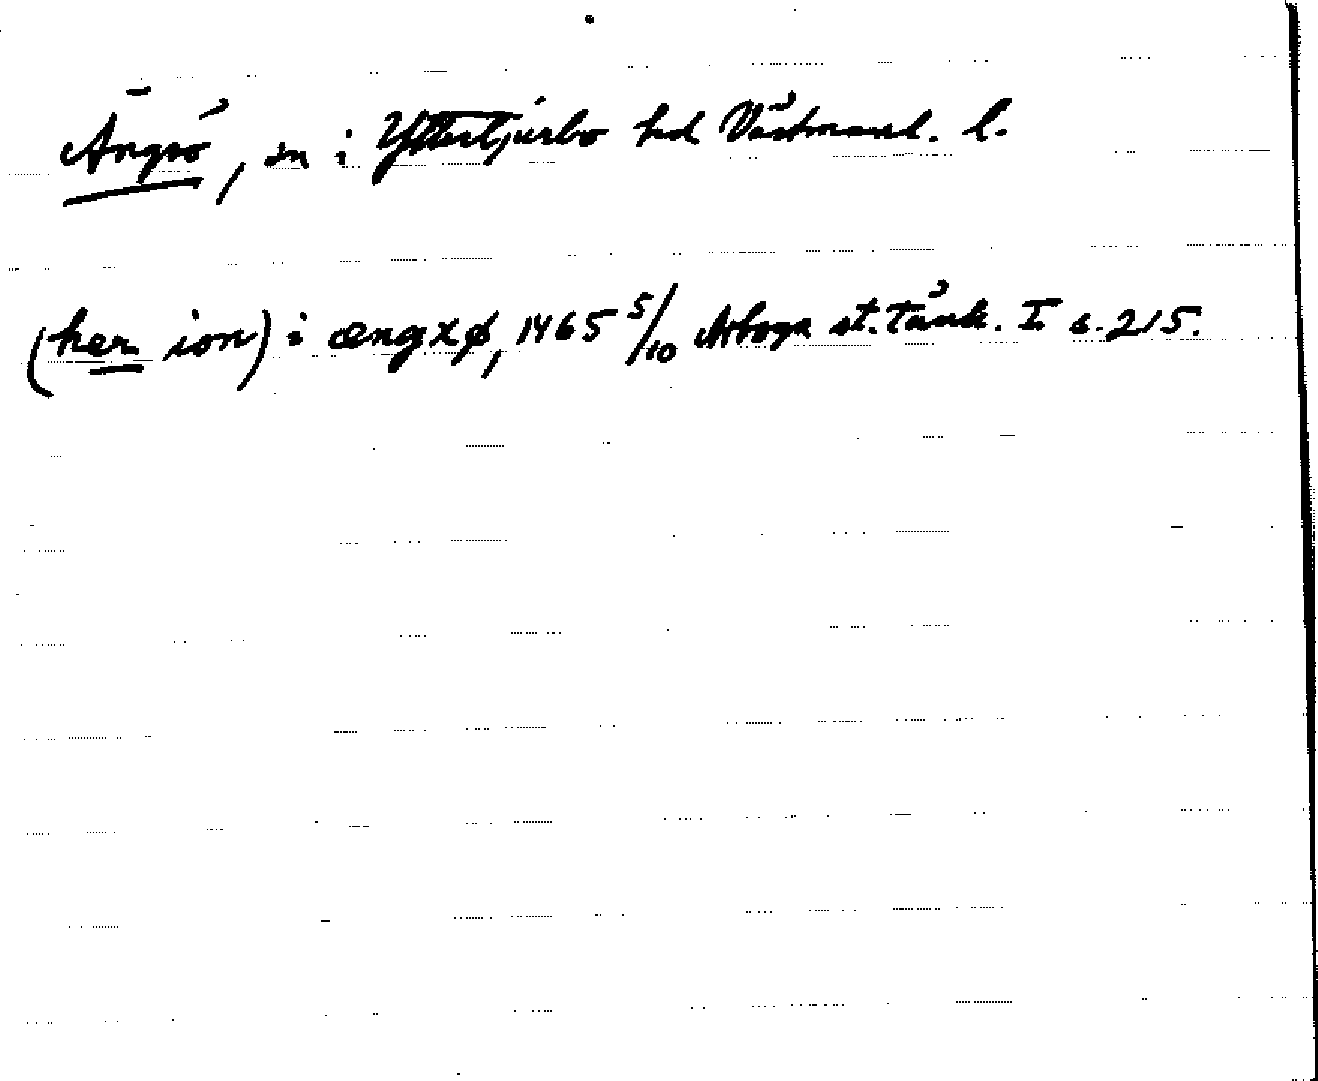 Ängsö, sn i Yttertjurbo hd Västmanl. l.
(her ion) i ængxø, 1465 5/10 Arboga st. tänk. I s. 215.